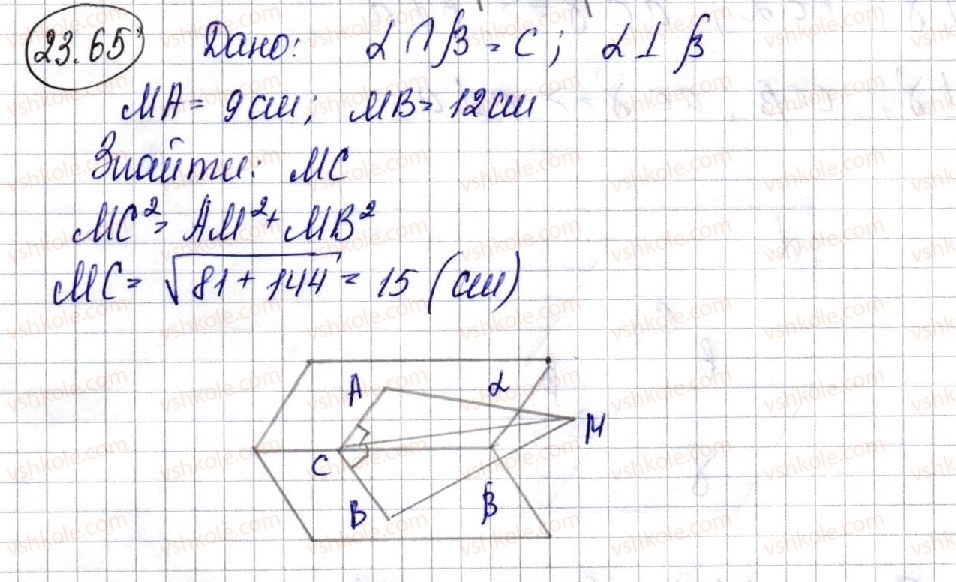 23.65 Дано: α ∩ β = C; α ⊥ β
MA = 9 см; MB = 12 см
Знайти: MC
MC² = AM² + MB²
MC = √81 + 144 = 15 (см)
A α
M
C
B β